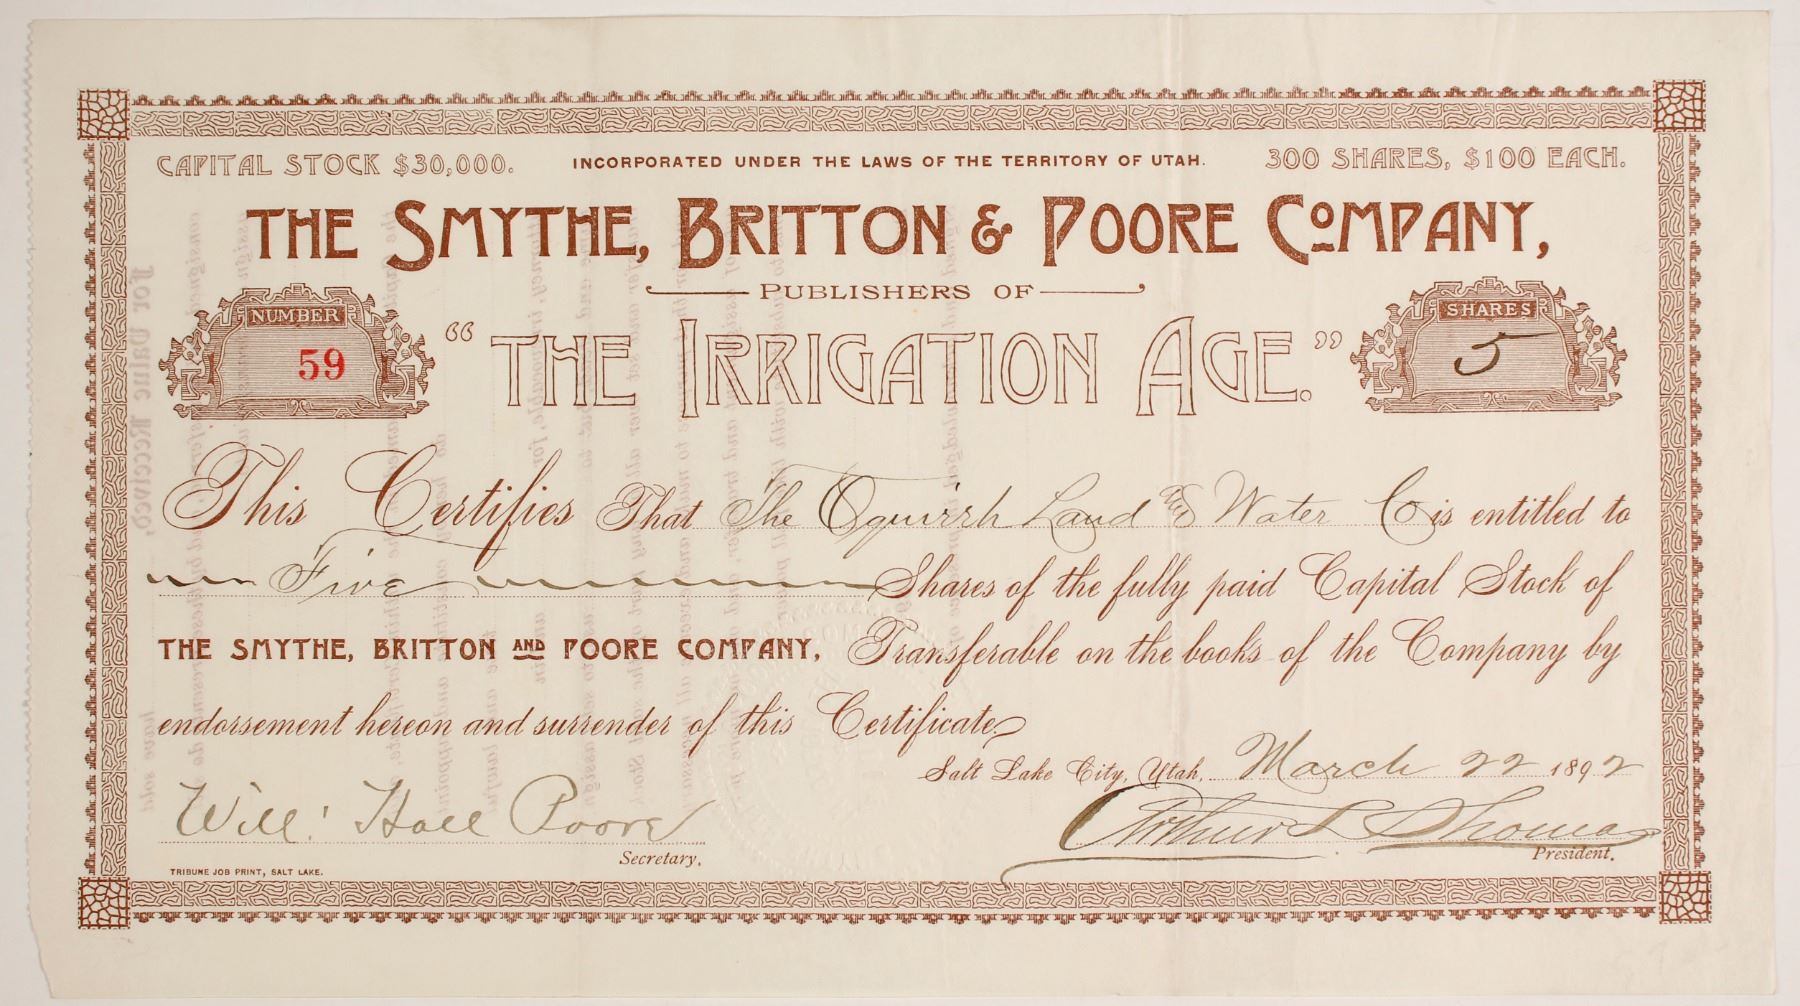 CAPITAL STOCK $30,000. INCORPORATED UNDER THE LAWS OF THE TERRITORY OF UTAH. 300 SHARES, $100 EACH.
THE SMYTHE, BRITTON & POORE COMPANY,
PUBLISHERS OF
NUMBER
59
"THE IRRIGATION AGE."
SHARES
5
This Certifies That The Oquirrh Land and Water Co is entitled to
Five Shares of the fully paid Capital Stock of
THE SMYTHE, BRITTON AND POORE COMPANY, Transferable on the books of the Company by
endorsement hereon and surrender of this Certificate.
Salt Lake City, Utah, March 22 1892
Will: Hall Poore
Secretary.
Arthur L. Thomas
President.
TRIBUNE JOB PRINT, SALT LAKE.